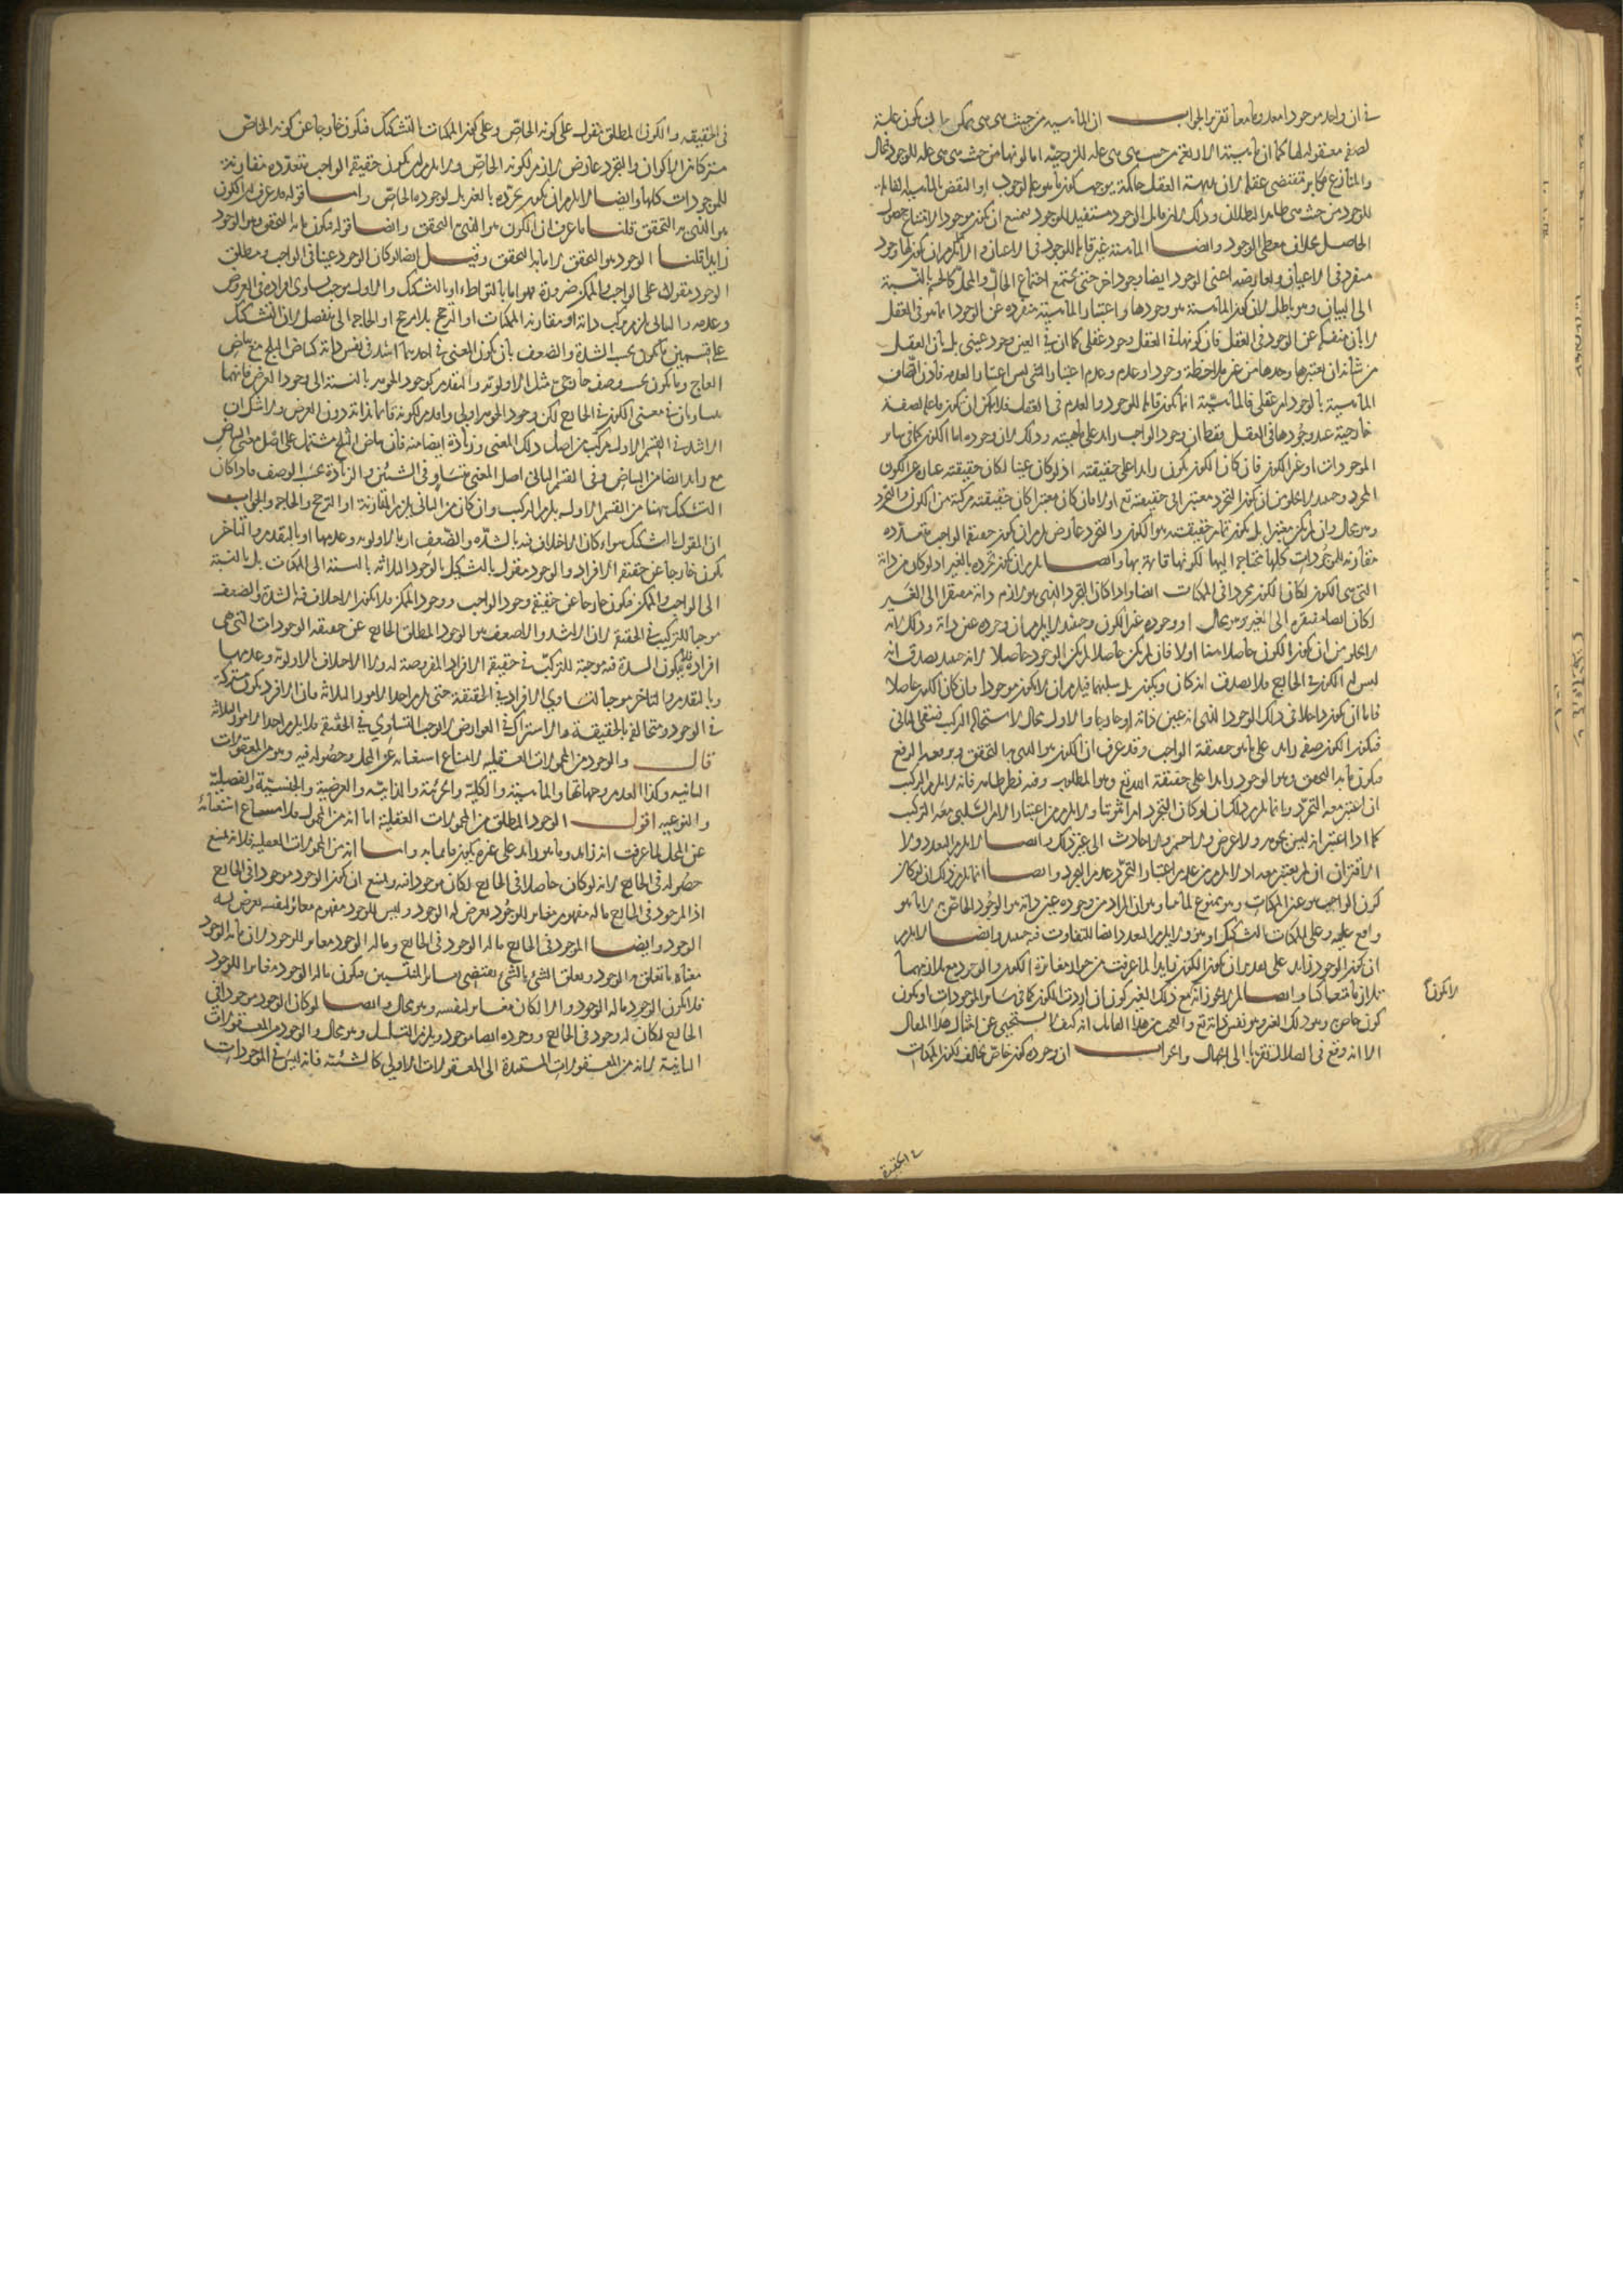 في ان واحد موجودا معدوما معا تقرير الجواب ان الماهية من حيث هي هي يمكن ان تكون علة
لصفة معقولة لها كما ان ماهية الاربعة من حيث هي هي علة للزوجية اما كونها من حيث هي هي علة للوجود فمحال
والمنازع مكابر مقتضى عقله لان بديهة العقل حاكمة بوجوب كون ما هو علة الوجود او النقض بالماهية القابلة
للوجود من حيث هي ظاهر البطلان وذلك لان قابل الوجود مستفيد للوجود يمتنع ان يكون موجودا لامتناع حصول
الحاصل بخلاف معطي الوجود وايضا الماهية غير قابلة للوجود في الاعيان والا لزم ان يكون لها وجود
منفرد في الاعيان ولعارضه اعني الوجود ايضا وجود اخر حتى يجتمع اجتماع الحال والمحل كالجسم بالنسبة
الى البياض وهو باطل لان كون الماهية هو وجودها واعتبار الماهية منفردة عن الوجود انما هو في العقل
لا بان منفكة عن الوجود في العقل فان كونها في العقل وجود عقلي كما ان في العين وجود عيني بل بان العقل
من شانه ان يعتبرها وحدها من غير ملاحظة وجود او عدم وعدم اعتبار الشئ ليس اعتبار العدمه فاذن اتصاف
الماهية بالوجود امر عقلي فالماهية انما تكون قابلة للوجود والعدم في العقل فلا يمكن ان تكون فاعلة لصفة
خارجية عند وجودها في العقل فقط ان وجود الواجب زايد على ماهيته وذلك لان وجوده اما الكون كما في ساير
الموجودات او غير الكون فان كان الكون يكون زايدا على حقيقته اذ لو كان عينا لكان حقيقته عبارة عن الكون
المجرد وحينئذ لا يخلو من ان يكون التجرد معتبرا في حقيقته تع او لا فان كان معتبرا كان حقيقته مركبة من الكون والتجرد
وهو محال وان لم يكن معتبرا بل يكون تمام حقيقته هو الكون والتجرد عارض لزم ان يكون حقيقة الواجب متعددة
مقارنة للموجودات كلها محتاجة اليها لكونها قائمة بها وايضا لزم ان يكون تجرده بالغير اذ لو كان من ذاته
التي هي الكون لكان الكون مجردا في الممكنات ايضا واذا كان التجرد الذي هو لازم ذاته مفتقرا الى الغير
لكان ايضا مفتقرة الى الغير وهو محال او وجوده غير الكون وحينئذ لا يلزم ان وجوده عين ذاته وذلك لانه
لا يخلو من ان يكون الكون حاصلا معنا اولا فان لم يكن حاصلا لم يكن الوجود حاصلا لانه حينئذ يصدق انه
ليس له الكون في الخارج فلا يصدق انه كان ويكون بل سلبهما فيلزم ان لا يكون موجودا وان كان الكون حاصلا
فاما ان يكون داخلا في ذلك الوجود الذي انه عين ذاته او خارجا والاول محال لاستحالة التركب فتبقى الثاني
فيكون الكون صفة زايدة على ما هو حقيقة الواجب وقد عرف ان الكون هو الذي به التحقق وبرفعه الرفع
فيكون ما به التحقق وهو الوجود زايدا على حقيقة الله تع وهو المطلوب وفيه نظر ظاهر فانه لا يلزم التركب
ان اعتبر معه التجرد وانما يلزم ذلك ان لو كان التجرد امرا ثبوتيا ولا يلزم من اعتبار الامر السلبي معه التركب
كما اذا اعتبر انه ليس بجوهر ولا عرض ولا جسم ولا حادث الى غير ذلك وايضا لا يلزم التعدد ولا
الاقتران ان لم يعتبر معه اذ لا يلزم من عدم اعتبار التجرد عدم التجرد وايضا انما يلزم ذلك ان لو كان
كون الواجب هو عين الممكنات وهو ممنوع لما مر وهو ان المراد من وجوده عين ذاته هو الوجود الخاص به لا ما هو
واقع عليه وعلى الممكنات بالتشكيك او هو ولا يلزم التعدد ايضا للتفاوت فيه حينئذ وايضا لا يلزم
ان يكون الوجود زايد على تقدير ان يكون الكون زايدا لما عرفت من جواز مغايرة الكون والوجود مع تلازمهما
تلازما متعاكسا وايضا لم لا يجوز انه مع ذلك الغير كون ان اردت الكون كما في ساير الموجودات او يكون
كون خاص وهو ذلك الغير وهو نفس ذاته تع والعجب من هذا القائل انه كيف لا يستحيي عن امثال هذا المقال
الا انه وقع في الضلال تقربا الى الجهال واعراب ان وجوده كون خاص مخالف لكون الممكنات
لا يكون
في الحقيقة
في الحقيقة والكون المطلق مقول على كونه الخاص وعلى كون الممكنات بالتشكيك فيكون خارجا عن كونه الخاص
مشتركا بين الاكوان والتجرد عارض لازم لكونه الخاص ولا يلزم ان يكون حقيقة الواجب متعددة مقارنة
للموجودات كلها وايضا لا يلزم ان يكون تجرده بالغير بل لوجوده الخاص واما قوله قد عرف ان الكون
هو الذي به التحقق قلنا ما عرف ان الكون هو الذي به التحقق وايضا قوله فيكون ما به التحقق وهو الوجود
زايدا قلنا الوجود هو التحقق لا ما به التحقق وقيل ايضا لو كان الوجود عينا في الواجب ومطلق
الوجود مقولا على الواجب والممكن ضرورة فهو اما بالتواطئ او بالتشكيك والاول يوجب تساوي افراده في العروض
وعدمه والثاني يلزم تركب ذاته او مقارنة الممكنات او الترجح بلا مرجح او الحاجة الى منفصل لان التشكيك
على قسمين ما يكون بحسب الشدة والضعف بان يكون المعنى في احدهما اشد في نفس ذاته كبياض الثلج مع بياض
العاج وما يكون بحسب وصف خارجي مثل الاولوية والتقدم كوجود الجوهر بالنسبة الى وجود العرض فانهما
متساويان في معنى الكون في الخارج لكن وجود الجوهر اولى واقدم لكونه قائما بذاته دون العرض ولا شك ان
الاشد في القسم الاول مركب من اصل ذلك المعنى وزيادة ايضا منه فان بياض الثلج مشتمل على اصل معنى البياض
مع زايد ايضا من البياض وفي القسم الثاني اصل المعنى متساو في الشيئين والزيادة بحسب الوصف فاذا كان
التشكيك ههنا من القسم الاول يلزم التركب وان كان من الثاني يلزم المقارنة او الترجح والحاجة والجواب
ان المقول بالتشكيك سواء كان الاختلاف فيه بالشدة والضعف او بالاولوية وعدمها او بالتقدم والتاخر
يكون خارجا عن حقيقة الافراد والوجود مقول بالتشكيك بالوجوه الثلاثة بالنسبة الى الممكنات بل بالنسبة
الى الواجب والممكن فيكون خارجا عن حقيقة وجود الواجب ووجود الممكن فلا يكون الاختلاف فيه بالشدة والضعف
موجبا للتركيب في الحقيقة لان الاشد والاضعف هو الوجود المطلق الخارج عن حقيقة الوجودات التي هي
افراده فلا يكون الشدة فيه موجبة للتركيب في حقيقة الافراد المفروضة له ولا الاختلاف بالاولوية وعدمها
وبالتقدم والتاخر موجبا لتساوي الافراد في الحقيقة حتى يلزم احد الامور الثلاثة فان الافراد يكون مشتركة
في الوجود ومتخالفة بالحقيقة والاشتراك في العوارض لا يوجب التساوي في الحقيقة فلا يلزم احد الامور الثلاثة
قال والوجود من المحمولات العقلية لامتناع استغنائه عن المحل وحصوله فيه وهو من المعقولات
الثانية وكذا العدم وجهاتهما والماهية والكلية والجزئية والذاتية والعرضية والجنسية والفصلية
والنوعية اقول الوجود المطلق من المحمولات العقلية اما انه من المحمول فلامتناع استغنائه
عن المحل لما عرفت انه زايد وما هو زايد على غيره يكون قائما به واما انه من المحمولات العقلية فلانه يمتنع
حصوله في الخارج لانه لو كان حاصلا في الخارج لكان موجودا فيه ويمتنع ان يكون الوجود موجودا في الخارج
اذ الموجود في الخارج ما له مفهوم مغاير للوجود يعرض له الوجود وليس للوجود مفهوم مغاير لنفسه يعرض له
الوجود وايضا الموجود في الخارج ما له الوجود في الخارج وما له الوجود مغاير للوجود لان ما له الوجود
معناه ما تعلق به الوجود وتعلق الشئ بالشئ يقتضي تغاير المنتسبين فيكون ما له الوجود مغايرا للوجود
فلا يكون الوجود ما له الوجود والا لكان مغايرا لنفسه وهو محال وايضا لو كان الوجود موجودا في
الخارج لكان له وجود في الخارج ووجوده ايضا موجود ويلزم التسلسل وهو محال والوجود من المعقولات
الثانية لانه من المعقولات المستندة الى المعقولات الاولى كالشيئية فانه ليس في الموجودات